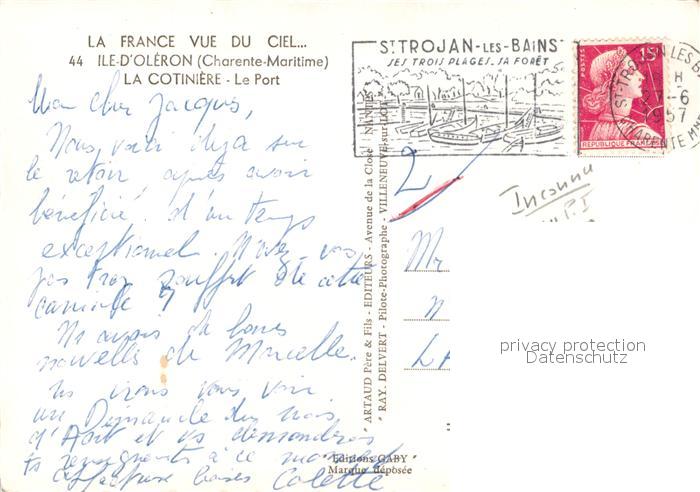 LA FRANCE VUE DU CIEL...
44 ILE-D'OLÉRON (Charente-Maritime)
LA COTINIÈRE - Le Port
Mon cher Jacques,
Nous voici déjà sur
le retour après avoir
bénéficié d'un temps
exceptionnel. N'avez-vous
pas trop souffert de cette
canicule ?
Ns avons de bonnes
nouvelles de Marcelle.
Ns irons vous voir
un Dimanche du mois
d'Août et vs demanderons
ts renseignements à ce moment
affectueux baisers Colette
"ARTAUD Père & Fils - EDITEURS - Avenue de la Close NANTES
"RAY. DELVERT - Pilote-Photographe - VILLENEUVE-sur-LOT
"Editions GABY"
Marque déposée
ST TROJAN-LES-BAINS
SES TROIS PLAGES. SA FORÊT
POSTES
15F
RÉPUBLIQUE FRANÇAISE
ST TROJAN LES B
H
-6
1957
CHARENTE
2
Inconnu
P.I
Mr
privacy protection
Datenschutz